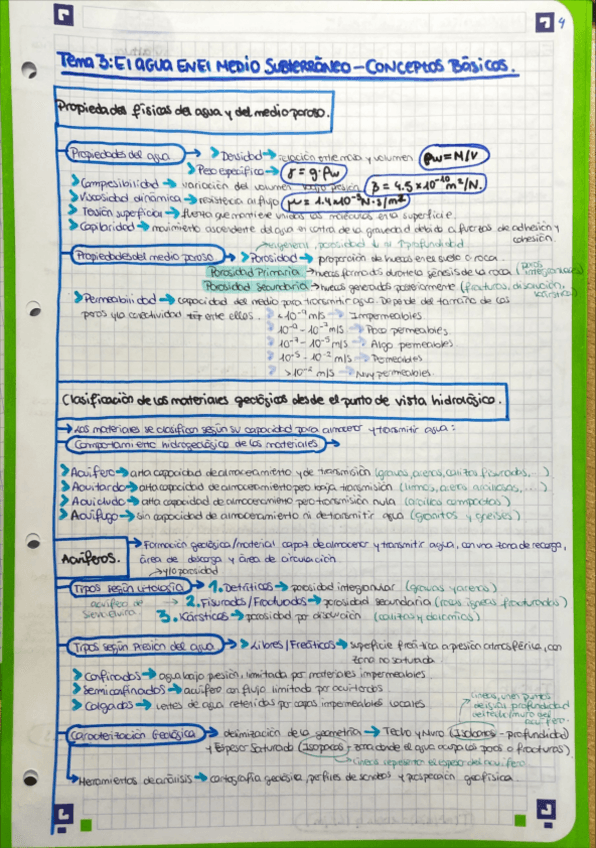 4
Tema 3: El agua en el medio subterráneo - Conceptos Básicos.
Propiedades físicas del agua y del medio poroso.
Propiedades del agua → > Densidad → relación entre masa y volumen ρw = M/V
> Peso específico → γ = g · ρw
> Compresibilidad → variación del volumen según presión β = 4.5 x 10⁻¹⁰ m²/N.
> Viscosidad dinámica → resistencia al flujo μ = 1.4 x 10⁻³ N·s/m²
> Tensión superficial → fuerza que mantiene unidas las moléculas en la superficie.
> Capilaridad → movimiento ascendente del agua en contra de la gravedad debido a fuerzas de adhesión y
cohesión.
en general, porosidad ↓ si ↑ profundidad
Propiedades del medio poroso → > Porosidad → proporción de huecos en el suelo o roca.
Porosidad Primaria → huecos formados durante la génesis de la roca (poros intergranulares)
Porosidad Secundaria → huecos generados posteriormente (fracturas, disolución,
> Permeabilidad → capacidad del medio para transmitir agua. Depende del tamaño de los
poros y la conectividad entre ellos.
< 10⁻⁹ m/s → Impermeables
10⁻⁹ - 10⁻⁷ m/s → Poco permeables
10⁻⁷ - 10⁻⁵ m/s → Algo permeables
10⁻⁵ - 10⁻² m/s → Permeables
> 10⁻² m/s → Muy permeables
Clasificación de los materiales geológicos desde el punto de vista hidrológico.
→ Los materiales se clasifican según su capacidad para almacenar y transmitir agua:
Comportamiento hidrogeológico de los materiales →
> Acuífero → alta capacidad de almacenamiento y de transmisión (gravas, arenas, calizas fisuradas, ...)
> Acuitardo → alta capacidad de almacenamiento pero baja transmisión (limos, arenas arcillosas, ...)
> Acuicludo → alta capacidad de almacenamiento pero transmisión nula (arcillas compactas)
> Acuífugo → sin capacidad de almacenamiento ni de transmitir agua (granitos y gneises)
Acuíferos.
→ Formación geológica/material capaz de almacenar y transmitir agua, con una zona de recarga,
área de descarga y área de circulación
y/o porosidad
Tipos según litología → 1. Detríticos → porosidad intergranular (gravas y arenas)
acuífero de Sierra Elvira
2. Fisurados/Fracturados → porosidad secundaria (rocas ígneas fracturadas)
3. Kársticos → porosidad por disolución (calizas y dolomías)
Tipos según Presión del agua → > Libres/Freáticos → superficie freática a presión atmosférica, con
zona no saturada.
> Confinados → agua bajo presión, limitada por materiales impermeables.
> Semiconfinados → acuífero con flujo limitado por acuitardos
> Colgados → lentes de agua retenidas por capas impermeables locales
líneas, unen puntos
de igual profundidad
del techo/muro del
acuífero.
Caracterización Geológica → delimitación de la geometría → Techo y Muro (Isobatas - profundidad)
y Espesor Saturado (Isopacas - zona donde el agua ocupa los poros o fracturas).
líneas representan el espesor del acuífero.
→ Herramientas de análisis → cartografía geológica, perfiles de sondeos y prospección geofísica.